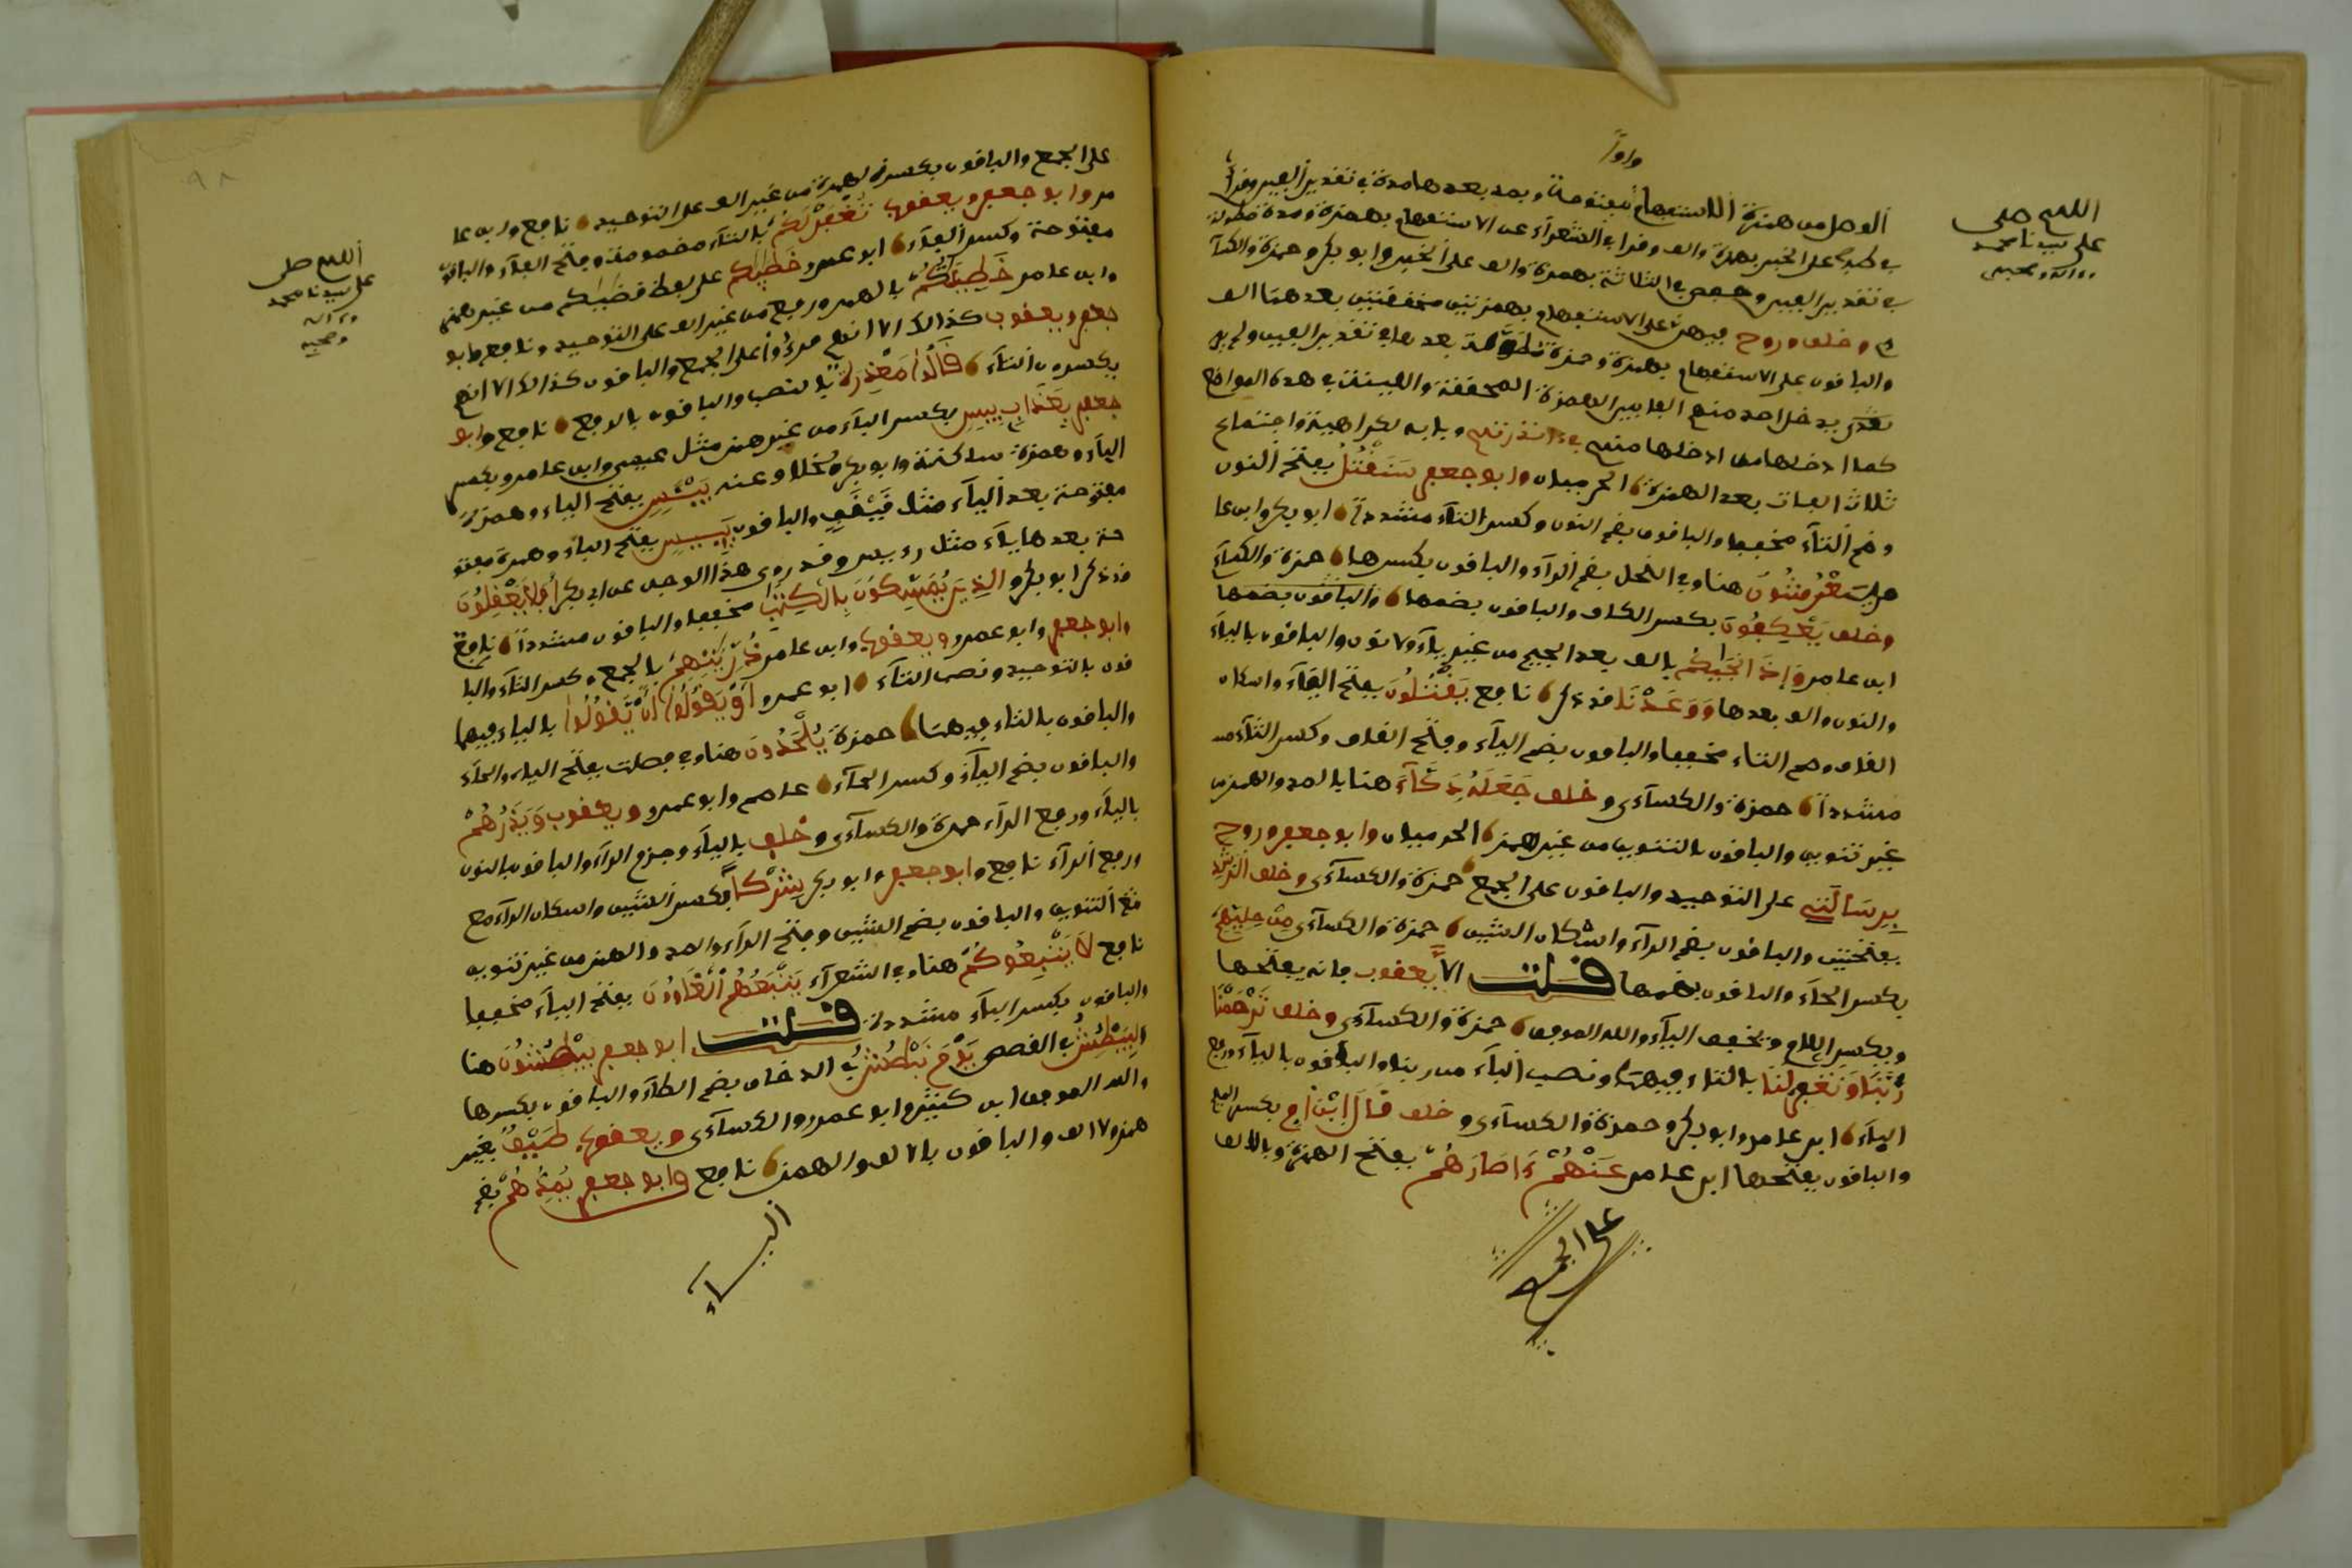 واوًا
الوصل من همزة الاستفهام مفتوحة ويمد بعدها مدة في تقدير ألفين وقرأ
في طه على الخبر بهمزة وألف وقرأ في الشعراء على الاستفهام بهمزة ومدة مطولة
في تقدير ألفين وحفص في الثلاثة بهمزة وألف على الخبر وأبو بكر وحمزة والكسآ
ى وخلف وروح فيهن على الاستفهام بهمزتين محققتين بعدهما ألف
والباقون على الاستفهام بهمزة وهمزة مطولة بعدها في تقدير ألفين ولم
يدخل احد منهم ألفا بين الهمزة المحققة والملينة في هذه المواضع
كما ادخلها من ادخلها منهم في ءانذرتهم وبابه لكراهية اجتماع
ثلاث الفات بعد الهمزة الحرميان وابو جعفر سَنَقْتُلُ بفتح النون
وضم التاء مخففا والباقون بضم النون وكسر التاء مشددا ابو بكر وابن عا
مر يَعْرُشُونَ هنا وفي النحل بضم الراء والباقون بكسرها حمزة والكسآءى
وخلف يَعْكِفُونَ بكسر الكاف والباقون بضمها
ابن عامر وَإِذَ انجَيكُم بالف بعد الجيم من غير ياء ولا نون والباقون بالياء
والنون والف بعدها وَوَعَدْنَا قد ذكر نافع يَقْتُلُونَ بفتح الياء واسكان
القاف وضم التاء مخففا والباقون بضم الياء وفتح القاف وكسر التاء
مشددا حمزة والكسآءى وخلف جَعَلَهُ دَكَّآءَ هنا بالمد والهمز من
غير تنوين والباقون بالتنوين من غير همز الحرميان وابو جعفر وروح
بِرِسَالَتِي على التوحيد والباقون على الجمع حمزة والكسآءى وخلف الرشد
بفتحتين والباقون بضم الراء واسكان الشين حمزة والكسآءى مِنْ حِلِيِّهِمْ
بكسر الحاء والباقون بضمها قلت الا يعقوب فانه يفتحها
ويكسر اللام ويخفف الياء والله الموفق حمزة والكسآءى وخلف تَرْحَمْنَا
رَبَّنَا وَتَغْفِرْ لَنَا بالتاء فيهما ونصب الباء من ربنا والباقون بالياء ورفع
الباء ابن عامر وابو بكر وحمزة والكسآءى وخلف قَالَ ابْنَ أُمِّ بكسر الميم
والباقون بفتحها ابن عامر عَنْهُمْ ءَاصَارَهُمْ بفتح الهمزة وبالالف
على الجمع
اللهم صلى
على سيدنا محمد
وءاله وصحبه
على الجمع والباقون بكسر الهمزة من غير الف على التوحيد نافع وابن عا
مر وابو جعفر ويعقوب تُغْفَرْ لَكُمْ بالتاء مضمومة وفتح الفاء والباقون
مفتوحة وكسر الفاء ابو عمرو خَطَايَاكُم على لفظ قضاياكم من غير همز
وابن عامر خَطِيئَتُكُمْ بالهمز ورفع من غير الف على التوحيد ونافع وابو
جعفر ويعقوب كذلك الا انهم قرءوا على الجمع والباقون كذلك الا انهم
يكسرون التاء قَالُوا مَعْذِرَةً بالنصب والباقون بالرفع نافع وابو
جعفر بِعَذَابٍ بِيسٍ بكسر الباء من غير همز مثل عيس وابن عامر بكسر
الباء وهمزة ساكنة وابو بكر بخلاف عنه بَيْئَسٍ بفتح الباء وهمزة
مفتوحة بعد الياء مثل فَيْعَل والباقون بَئِيسٍ بفتح الباء وهمزة مكسو
رة بعدها ياء مثل رءيس وقد روى هذا الوجه عن ابي بكر أَفَلَا تَعْقِلُونَ
قد ذكر ابو بكر والذِينَ يُمْسِكُونَ بِالْكِتَبِ مخففا والباقون مشددا نافع
وابو جعفر وابو عمرو ويعقوب وابن عامر ذُرِّيَّتِهِمْ بالجمع وكسر التاء والبا
قون بالتوحيد ونصب التاء ابو عمرو أَوْ يَقُولُوا أَنْ يَّقُولُوا بالياء فيهما
والباقون بالتاء فيهما حمزة يَلْحَدُونَ هنا وفي فصلت بفتح الياء والحاء
والباقون بضم الياء وكسر الحاء عاصم وابو عمرو ويعقوب وَيَذَرُهُمْ
بالياء ورفع الراء حمزة والكسآءى وخلف بالياء وجزم الراء والباقون بالنون
ورفع الراء نافع وابو جعفر وابو بكر شِرْكًا بكسر الشين واسكان الراء مع
التنوين والباقون بضم الشين وفتح الراء والمد والهمز من غير تنوين
نافع لَا يَتْبَعُوكُمْ هنا وفي الشعراء يَتْبَعُهُمُ الْغَاوُونَ بفتح الباء مخففا
والباقون بكسر الباء مشددة قلت ابو جعفر يَبْطُشُونَ هنا
ويَبْطُشَ في القصص يَوْمَ نَبْطُشُ في الدخان بضم الطاء والباقون بكسرها
والله الموفق ابن كثير وابو عمرو والكسآءى ويعقوب طَيْفٌ بغير
همز ولا الف والباقون بالالف والهمز نافع وابو جعفر يُمِدُّهُمْ بضم
اليــاء
اللهم صل
على سيدنا محمد
وءاله
وصحبه
٩٨